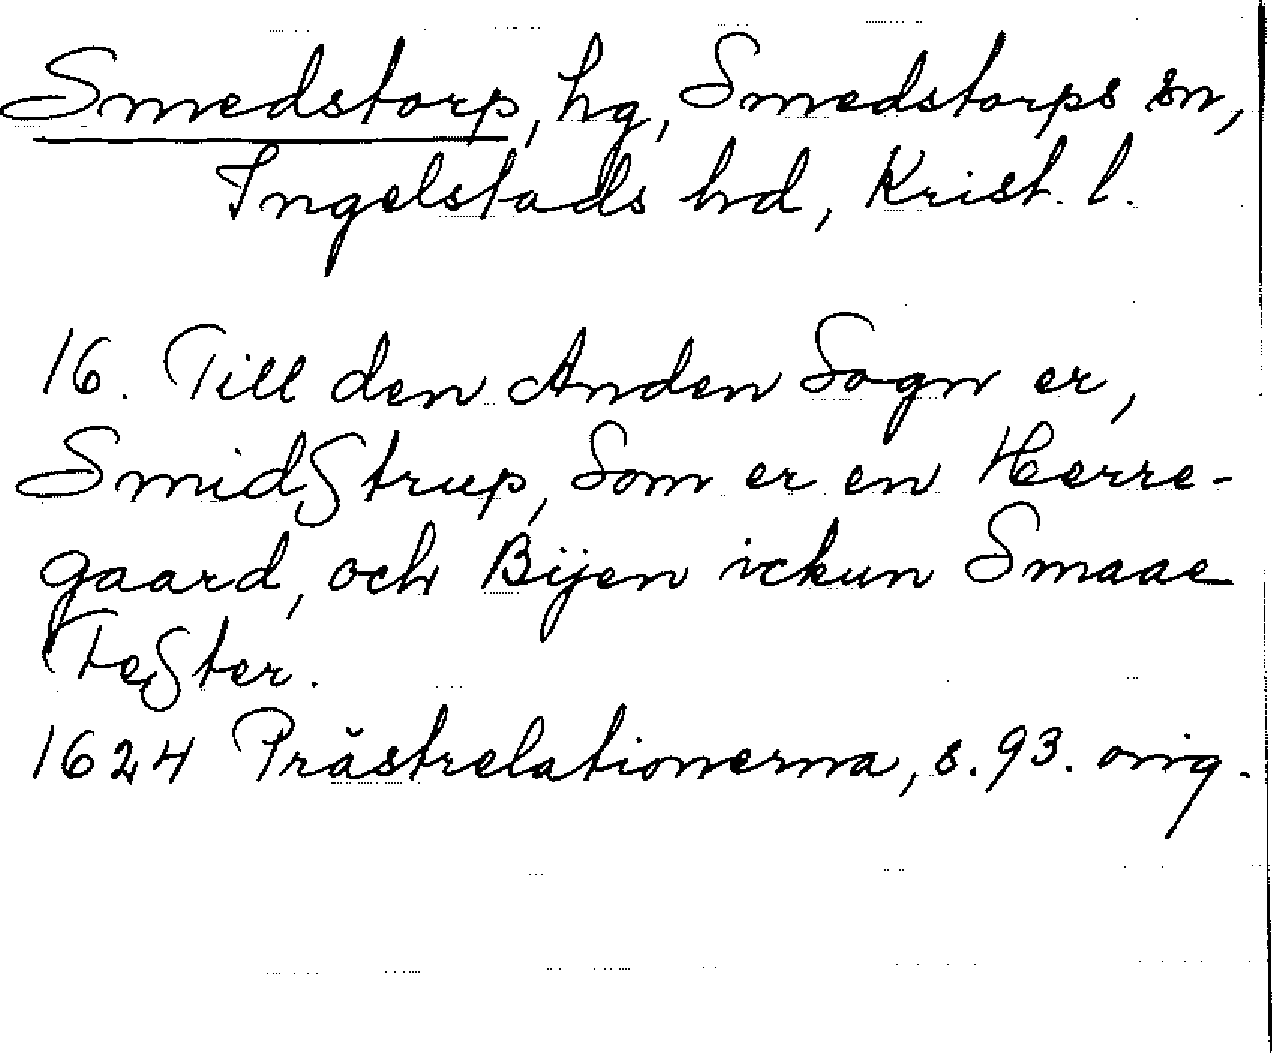 Smedstorp, hg, Smedstorps sn,
Ingelstads hd, Krist. l.
16. Till den Anden Sogn er,
SmidStrup, Som er en Herre-
gaard, och Bijen ickun Smaae
FeSter.
1624 Prästrelationerna, s. 93. orig.